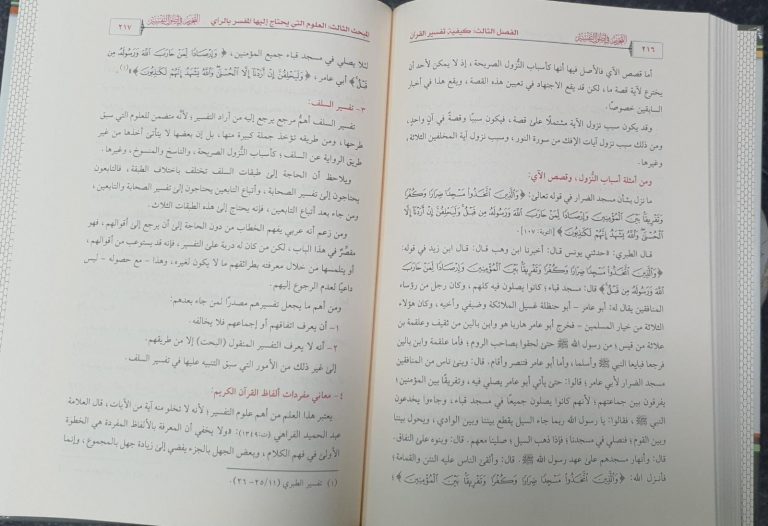 ٢١٦
الفصل الثالث: كيفية تفسير القرآن
أما قصص الآي فالأصل فيها أنها كأسباب النُّزول الصريحة، إذ لا يمكن لأحد أن
يخترع لآية قصة ما، لكن قد يقع الاجتهاد في تعيين هذه القصة، ويقع هذا في أخبار
السابقين خصوصًا.
وقد يكون سبب نزول الآية مشتملًا على قصة، فيكون سببًا وقصةً في آنٍ واحدٍ،
ومن ذلك سبب نزول آيات الإفك من سورة النور، وسبب نزول آية المخلفين الثلاثة،
وغيرها.
ومن أمثلة أسباب النُّزول، وقصص الآي:
ما نزل بشأن مسجد الضرار في قوله تعالى: ﴿وَالَّذِينَ اتَّخَذُوا مَسْجِدًا ضِرَارًا وَكُفْرًا
وَتَفْرِيقًا بَيْنَ الْمُؤْمِنِينَ وَإِرْصَادًا لِمَنْ حَارَبَ اللَّهَ وَرَسُولَهُ مِن قَبْلُ وَلَيَحْلِفُنَّ إِنْ أَرَدْنَا إِلَّا
الْحُسْنَى وَاللَّهُ يَشْهَدُ إِنَّهُمْ لَكَاذِبُونَ﴾ [التوبة: ١٠٧].
قال الطبري: «حدثني يونس، قال: أخبرنا ابن وهب، قال: قال ابن زيد في قوله:
﴿وَالَّذِينَ اتَّخَذُوا مَسْجِدًا ضِرَارًا وَكُفْرًا وَتَفْرِيقًا بَيْنَ الْمُؤْمِنِينَ وَإِرْصَادًا لِمَنْ حَارَبَ
اللَّهَ وَرَسُولَهُ مِن قَبْلُ﴾ قال: مسجد قباء؛ كانوا يصلون فيه كلهم، وكان رجل من رؤساء
المنافقين يقال له: أبو عامر - أبو حنظلة غسيل الملائكة وصيفي وأخيه، وكان هؤلاء
الثلاثة من خيار المسلمين - فخرج أبو عامر هاربا هو وابن بالين من ثقيف وعلقمة بن
علاثة من قيس؛ من رسول الله ﷺ حتى لحقوا بصاحب الروم؛ فأما علقمة وابن بالين
فرجعا فبايعا النبي ﷺ وأسلما، وأما أبو عامر فتنصر وأقام، قال: وبنى ناس من المنافقين
مسجد الضرار لأبي عامر؛ قالوا: حتى يأتي أبو عامر يصلي فيه، وتفريقًا بين المؤمنين؛
يفرقون بين جماعتهم؛ لأنهم كانوا يصلون جميعًا في مسجد قباء، وجاءوا يخدعون
النبي ﷺ، فقالوا: يا رسول الله ربما جاء السيل يقطع بيننا وبين الوادي، ويحول بيننا
وبين القوم؛ فنصلي في مسجدنا؛ فإذا ذهب السيل؛ صلينا معهم. قال: وبنوه على النفاق.
قال: وانهار مسجدهم على عهد رسول الله ﷺ. قال: وألقى الناس عليه النتن والقمامة؛
فأنزل الله: ﴿وَالَّذِينَ اتَّخَذُوا مَسْجِدًا ضِرَارًا وَكُفْرًا وَتَفْرِيقًا بَيْنَ الْمُؤْمِنِينَ﴾؛
المبحث الثالث: العلوم التي يحتاج إليها المفسر بالرأي
٢١٧
لئلا يصلي في مسجد قباء جميع المؤمنين، ﴿وَإِرْصَادًا لِمَنْ حَارَبَ اللَّهَ وَرَسُولَهُ مِن
قَبْلُ﴾ أبي عامر، ﴿وَلَيَحْلِفُنَّ إِنْ أَرَدْنَا إِلَّا الْحُسْنَى وَاللَّهُ يَشْهَدُ إِنَّهُمْ لَكَاذِبُونَ﴾»(١).
٣ - تفسير السلف:
تفسير السلف أهمُّ مرجع يرجع إليه من أراد التفسير؛ لأنه متضمن للعلوم التي سبق
طرحها، ومن طريقه تؤخذ جملة كبيرة منها، بل إن بعضها لا يتأتى أخذها من غير
طريق الرواية عن السلف؛ كأسباب النُّزول الصريحة، والناسخ والمنسوخ، وغيرها.
ويلاحظ أن الحاجة إلى طبقات السلف تختلف باختلاف الطبقة، فالتابعون
يحتاجون إلى تفسير الصحابة، وأتباع التابعين يحتاجون إلى تفسير الصحابة والتابعين،
ومن جاء بعد أتباع التابعين، فإنه يحتاج إلى هذه الطبقات الثلاث.
ومن زعم أنه عربي يفهم الخطاب من دون الحاجة إلى أن يرجع إلى أقوالهم، فهو
مقصِّر في هذا الباب، لكن من كان له دربة على التفسير، فإنه قد يستوعب من أقوالهم،
أو يتلمسها من خلال معرفته بطرائقهم ما لا يكون لغيره، وهذا - مع حصوله - ليس
داعيًا لعدم الرجوع إليهم.
ومن أهم ما يجعل تفسيرهم مصدرًا لمن جاء بعدهم:
١ - أن يعرف اتفاقهم أو إجماعهم فلا يخالفه.
٢ - أنه لا يعرف التفسير المنقول (البحت) إلا من طريقهم.
إلى غير ذلك من الأمور التي سبق التنبيه عليها في تفسير السلف.
٤ - معاني مفردات ألفاظ القرآن الكريم:
يعتبر هذا العلم من أهم علوم التفسير؛ لأنه لا تخلو منه آية من الآيات، قال العلامة
عبد الحميد الفراهي (ت:١٣٤٩): «ولا يخفى أن المعرفة بالألفاظ المفردة هي الخطوة
الأولى في فهم الكلام، وبعض الجهل بالجزء يفضي إلى زيادة جهل بالمجموع، وإنما
(١) تفسير الطبري (١١/ ٢٥- ٢٦).